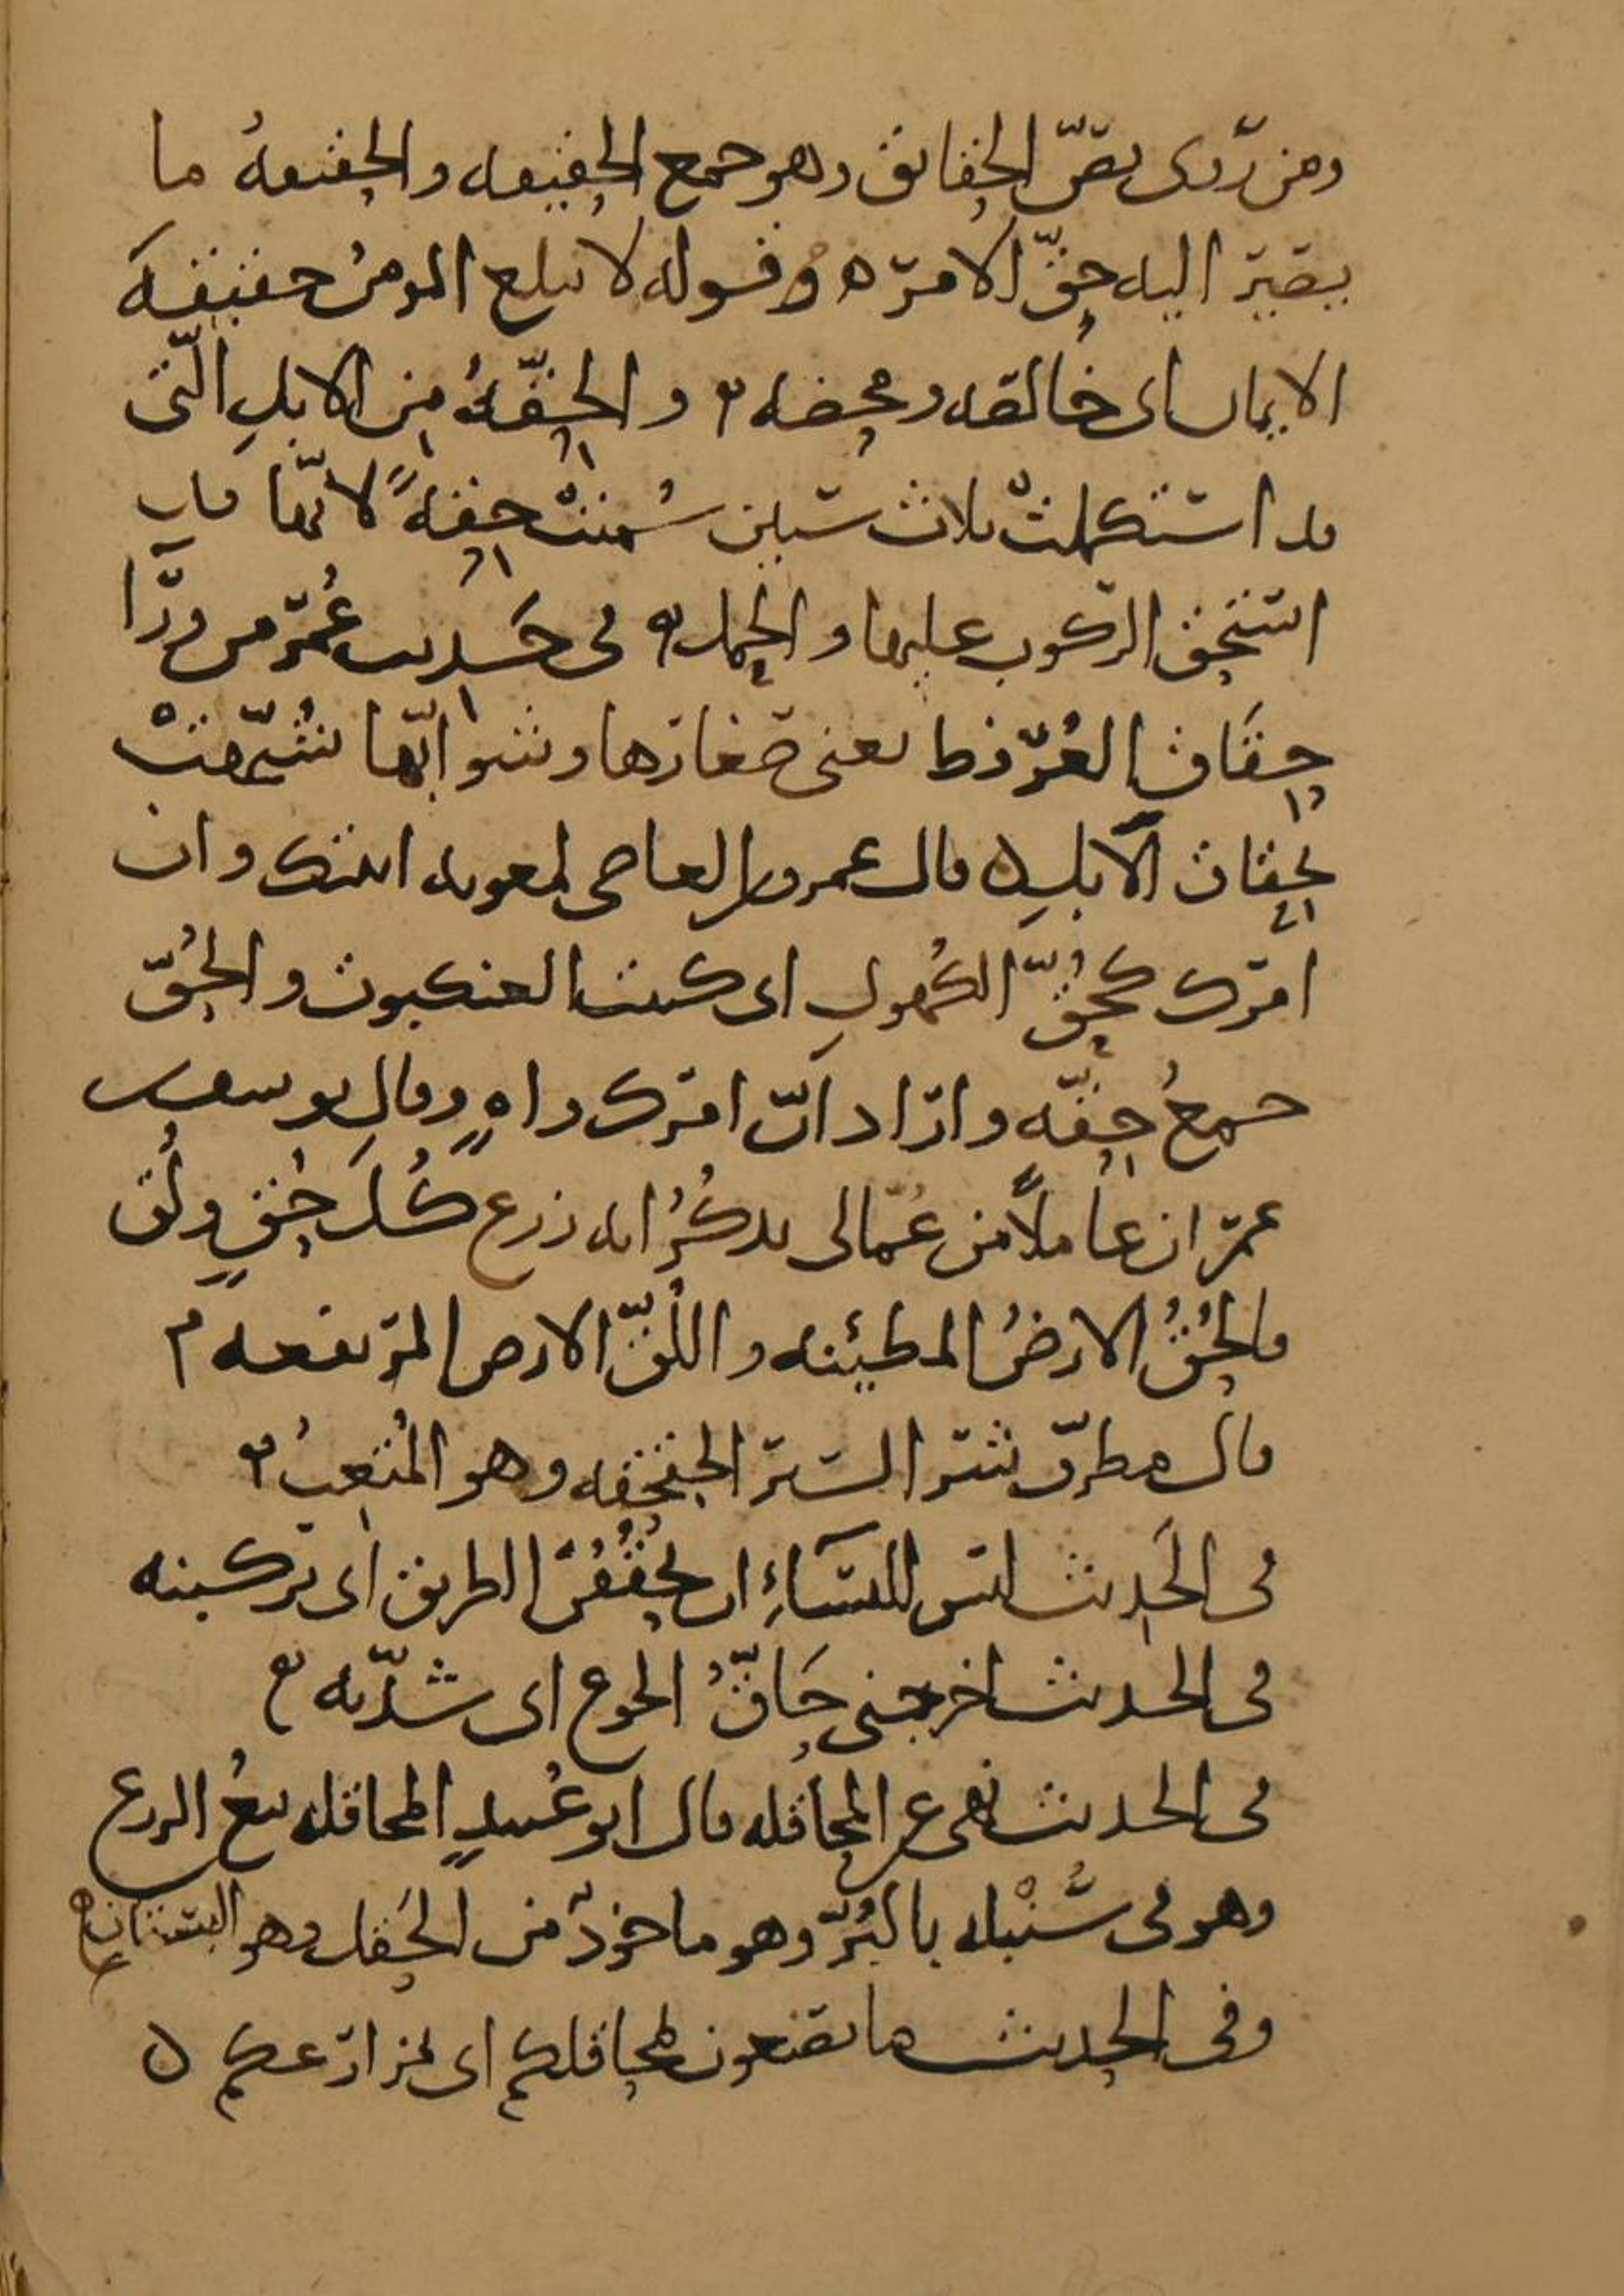 ومن روى نصّ الحقائق وهو جمع الحقيقه والحقيقهُ ما
يصير اليه حقّ الامر ه وقوله لا يبلغ المومنُ حقيقهَ
الايمان اى خالصه ومحضه والحِقّهُ مِن الابلِ الّتى
قد استكملتْ ثلاث سنين سُميتْ حِقهً لانّها قد
استحق الركوب عليها والحمل فى حَديث عُمر من ورآ
حِقَاق العُرفط يعنى صغارها وشوابّها شُبّهتْ
بحِقاق الابلِ ه قال عمرو بن العاصى لمعويه اتيتك وان
امرك كحُقّ الكَهولِ اى كبيت العنكبوت والحُقّ
جمعُ حِقّه واراد انّ امرك واهٍ وقال يوسف بن
عمر ان عاملاً من عُمّالى يذكُرُ انه زرع كُلَّ حُقٍّ ولُقٍّ
فالحُقُّ الارضُ المطمئنه واللُقّ الارض المرتفعه
قال مطرّف شر السير الحقحقه وهو المُتعِبُ
فى الحَديث ليس للنسَآءِ ان يحقُقْنَ الطريق اى يركبنه
فى الحديث اخرجنى حَاقُّ الجوع اى شدّته
فى الحديث نهى عن المحاقله قال ابو عُبيدٍ المحاقله بيعُ الزرع
وهو فى سُنْبله بالبُرّ وهو ماخوذٌ من الحَقل وهو البستان
وفى الحديث ما تصنعون بمحاقلكم اى بمزارعكم ه